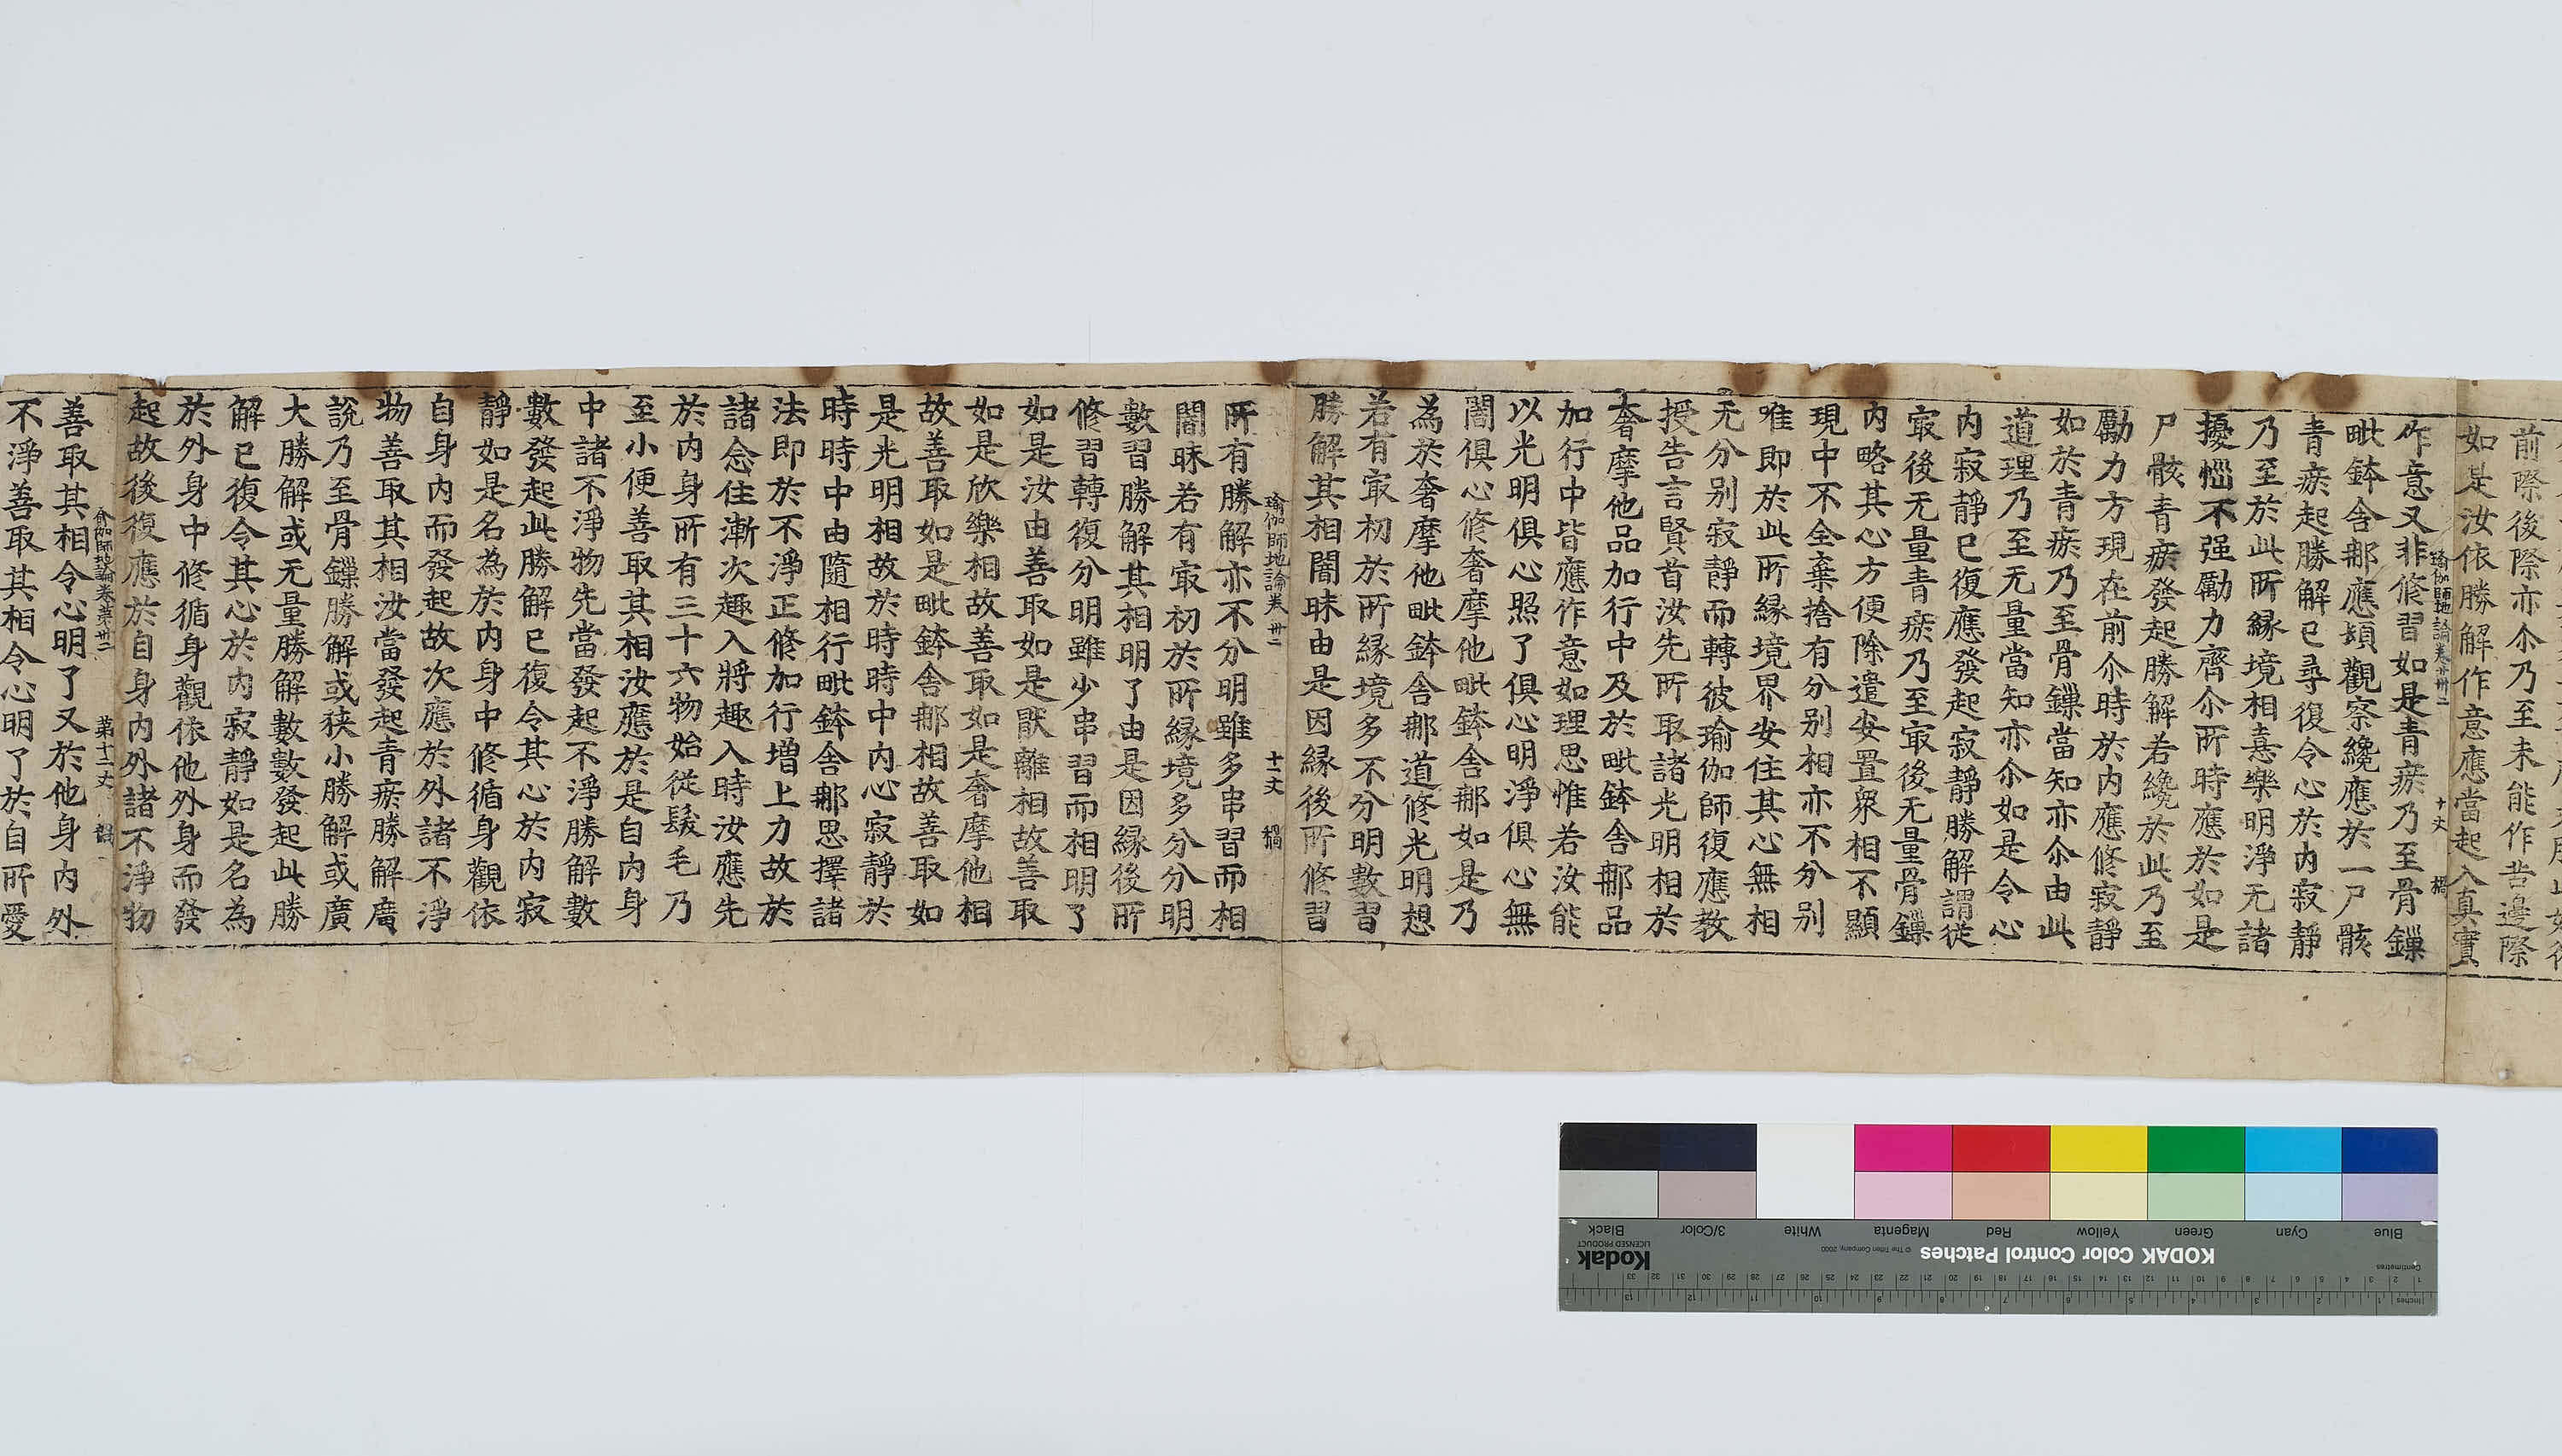 前際後際亦尒乃至未能作苦邊際
如是汝依勝解作意應當起入真實
瑜伽師地論卷第卅二 十丈 㮹
作意又非修習如是青瘀乃至骨鏁
毗鉢舍那應頻觀察纔應於一尸骸
青瘀起勝解已尋復令心於內寂靜
乃至於此所緣境相憙樂明淨无諸
擾惱不强勵力齊尒所時應於如是
尸骸青瘀發起勝解若纔於此乃至
勵力方現在前尒時於內應修寂靜
如於青瘀乃至骨鏁當知亦尒由此
道理乃至无量當知亦尒如是令心
內寂靜已復應發起寂靜勝解謂從
㝡後无量青瘀乃至㝡後无量骨鏁
內略其心方便除遣安置衆相不顯
現中不全棄捨有分別相亦不分別
唯即於此所緣境界安住其心無相
无分別寂靜而轉彼瑜伽師復應教
授告言賢首汝先所取諸光明相於
奢摩他品加行中及於毗鉢舍那品
加行中皆應作意如理思惟若汝能
以光明俱心照了俱心明淨俱心無
闇俱心修奢摩他毗鉢舍那如是乃
為於奢摩他毗鉢舍那道修光明想
若有㝡初於所緣境多不分明數習
勝解其相闇昧由是因緣後所修習
瑜伽師地論卷卅二 十一丈 㮹
所有勝解亦不分明雖多串習而相
闇昧若有㝡初於所緣境多分分明
數習勝解其相明了由是因緣後所
修習轉復分明雖少串習而相明了
如是汝由善取如是猒離相故善取
如是欣樂相故善取如是奢摩他相
故善取如是毗鉢舍那相故善取如
是光明相故於時時中內心寂靜於
時時中由隨相行毗鉢舍那思擇諸
法即於不淨正修加行增上力故於
諸念住漸次趣入將趣入時汝應先
於內身所有三十六物始從髮毛乃
至小便善取其相汝應於是自內身
中諸不淨物先當發起不淨勝解數
數發起此勝解已復令其心於內寂
靜如是名為於內身中修循身觀依
自身內而發起故次應於外諸不淨
物善取其相汝當發起青瘀勝解廣
說乃至骨鏁勝解或狹小勝解或廣
大勝解或无量勝解數數發起此勝
解已復令其心於內寂靜如是名為
於外身中修循身觀依他外身而發
起故後復應於自身內外諸不淨物
俞伽師地論卷第卅二 第十二丈
善取其相令心明了又於他身內外
不淨善取其相令心明了於自所愛
KODAK Color Control Patches
Kodak
LICENSED PRODUCT
© The Tiffen Company, 2000
Blue Cyan Green Yellow Red Magenta White 3/Color Black
Centimetres 1 2 3 4 5 6 7 8 9 10 11 12 13 14 15 16 17 18 19 20 21 22 23 24 25 26 27 28 29 30 31 32 33
Inches 1 2 3 4 5 6 7 8 9 10 11 12 13